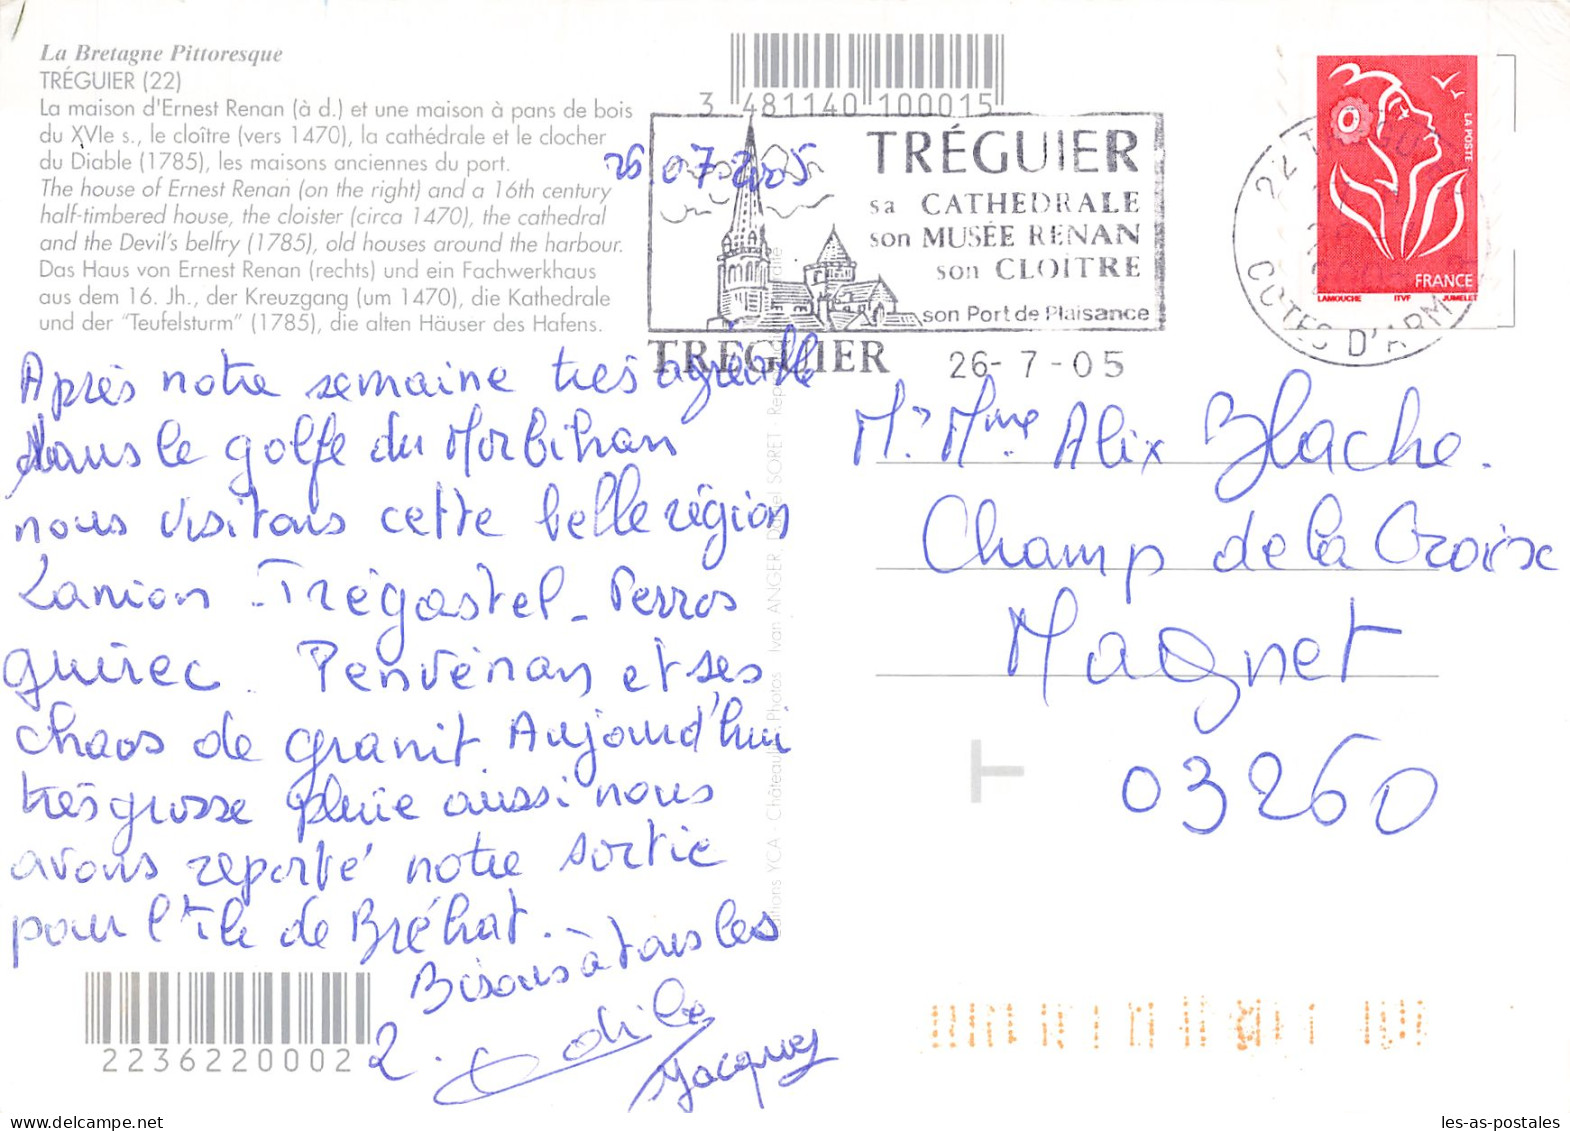 La Bretagne Pittoresque
TRÉGUIER (22)
La maison d'Ernest Renan (à d.) et une maison à pans de bois
du XVIe s., le cloître (vers 1470), la cathédrale et le clocher
du Diable (1785), les maisons anciennes du port.
The house of Ernest Renan (on the right) and a 16th century
half-timbered house, the cloister (circa 1470), the cathedral
and the Devil's belfry (1785), old houses around the harbour.
Das Haus von Ernest Renan (rechts) und ein Fachwerkhaus
aus dem 16. Jh., der Kreuzgang (um 1470), die Kathedrale
und der "Teufelsturm" (1785), die alten Häuser des Hafens.
3 481140 100015
26 07 2005
TRÉGUIER
sa CATHEDRALE
son MUSÉE RENAN
son CLOITRE
son Port de Plaisance
TREGUIER
26-7-05
COTES D'ARMOR
LA POSTE
FRANCE
LAMOUCHE ITVF JUMELET
Après notre semaine très agréable
dans le golfe du Morbihan
nous visitons cette belle région
Lanion - Trégastel - Perros
guirec. Penvénan et ses
chaos de granit. Aujourd'hui
très grosse pluie aussi nous
avons reporté notre sortie
pour l'île de Bréhat.
Bisous à tous les
2.
Odile
Jacques
Mr Mme Alix Blache.
Champ de la Croix
Magnet
03260
2236220002
Editions YCA - Châteaulin Photos Ivan ANGER, Daniel SORET -
les-as-postales